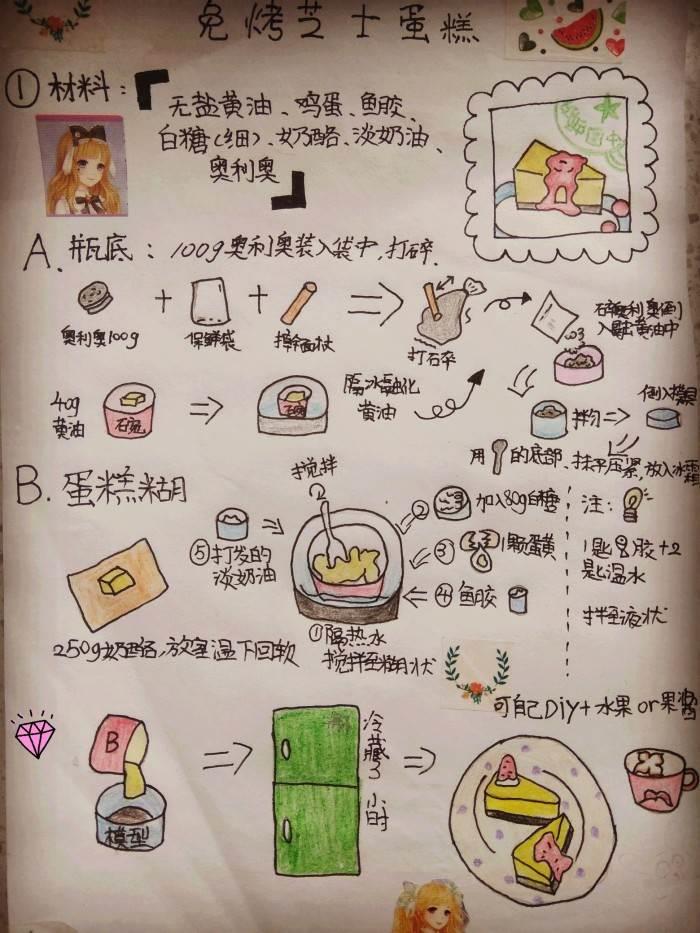 免烤芝士蛋糕
① 材料：
无盐黄油、鸡蛋、鱼胶、
白糖(细)、奶酪、淡奶油、
奥利奥
A. 瓶底：100g奥利奥装入袋中,打碎.
奥利奥100g
保鲜袋
擀面杖
打碎
碎奥利奥倒
入融黄油中
40g
黄油
隔水融化
黄油
拌匀
倒入模具
用
的底部、抹平压紧,放入冰霜
B. 蛋糕糊
搅拌
② 加入80g白糖
③ 1颗蛋黄
④ 鱼胶
⑤打发的
淡奶油
①隔热水
搅拌至糊状
250g奶酪,放室温下回软
注：
1匙鱼胶+2
匙温水
拌至液状
可自己Diy+水果or果酱
B
模型
冷藏3小时